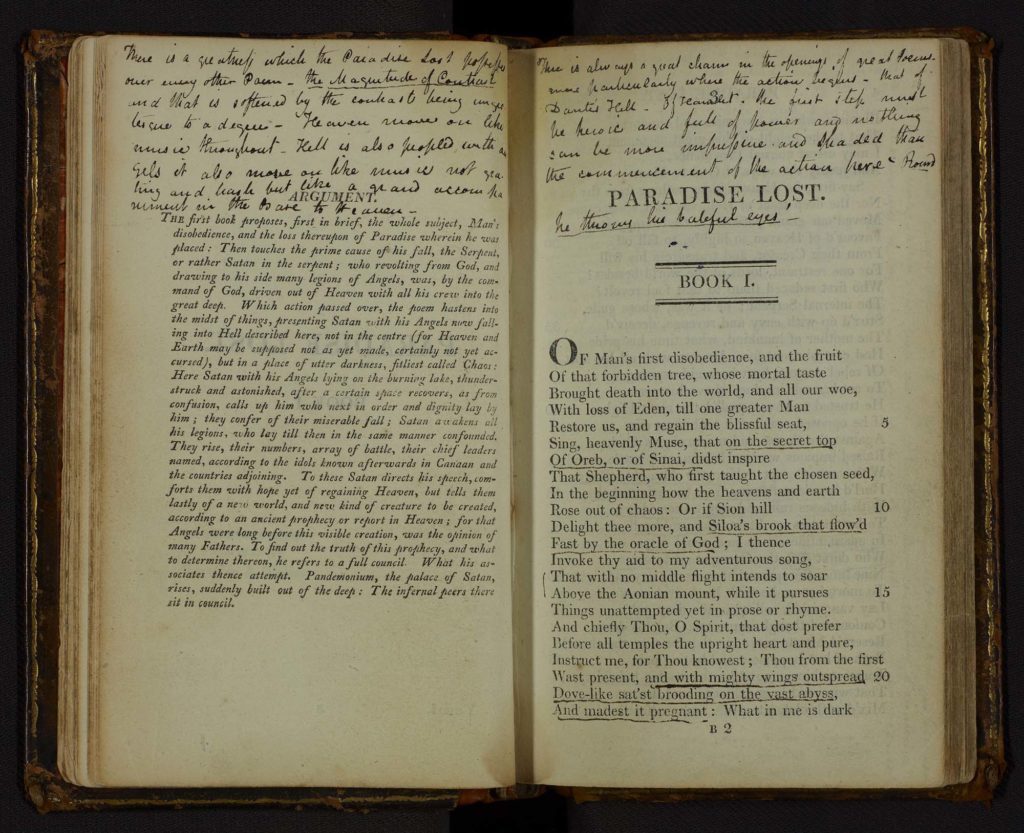 There is a greatness which the Paradise Lost possesses
over every other Poem – the Magnitude of Contrast
and that is softened by the contrast being ungro
tesque to a degree – Heaven moves on like
music throughout – Hell is also peopled with an
gels it also moves on like music not gra-
ting and harsh but like a grand accompa
niment in the Base to Heaven –
ARGUMENT.
THE first book proposes, first in brief, the whole subject, Man's
disobedience, and the loss thereupon of Paradise wherein he was
placed: Then touches the prime cause of his fall, the Serpent,
or rather Satan in the serpent; who revolting from God, and
drawing to his side many legions of Angels, was, by the com-
mand of God, driven out of Heaven with all his crew into the
great deep. Which action passed over, the poem hastens into
the midst of things, presenting Satan with his Angels now fall-
ing into Hell described here, not in the centre (for Heaven and
Earth may be supposed not as yet made, certainly not yet ac-
cursed), but in a place of utter darkness, fitliest called Chaos:
Here Satan with his Angels lying on the burning lake, thunder-
struck and astonished, after a certain space recovers, as from
confusion, calls up him who next in order and dignity lay by
him; they confer of their miserable fall; Satan awakens all
his legions, who lay till then in the same manner confounded.
They rise, their numbers, array of battle, their chief leaders
named, according to the idols known afterwards in Canaan and
the countries adjoining. To these Satan directs his speech, com-
forts them with hope yet of regaining Heaven, but tells them
lastly of a new world, and new kind of creature to be created,
according to an ancient prophecy or report in Heaven; for that
Angels were long before this visible creation, was the opinion of
many Fathers. To find out the truth of this prophecy, and what
to determine thereon, he refers to a full council. What his as-
sociates thence attempt. Pandemonium, the palace of Satan,
rises, suddenly built out of the deep: The infernal peers there
sit in council.
There is always a great charm in the openings of great Poems.
more particularly where the action begins – that of
Dante's Hell – of Hamlet. the first step must
be heroic and full of power and nothing
can be more impressive and shaded than
the commencement of the action here "Round
PARADISE LOST.
he throws his baleful eyes" –
BOOK I.
OF Man's first disobedience, and the fruit
Of that forbidden tree, whose mortal taste
Brought death into the world, and all our woe,
With loss of Eden, till one greater Man
Restore us, and regain the blissful seat, 5
Sing, heavenly Muse, that on the secret top
Of Oreb, or of Sinai, didst inspire
That Shepherd, who first taught the chosen seed,
In the beginning how the heavens and earth
Rose out of chaos: Or if Sion hill 10
Delight thee more, and Siloa's brook that flow'd
Fast by the oracle of God; I thence
Invoke thy aid to my adventurous song,
That with no middle flight intends to soar
Above the Aonian mount, while it pursues 15
Things unattempted yet in prose or rhyme.
And chiefly Thou, O Spirit, that dost prefer
Before all temples the upright heart and pure,
Instruct me, for Thou knowest; Thou from the first
Wast present, and with mighty wings outspread 20
Dove-like sat'st brooding on the vast abyss,
And madest it pregnant: What in me is dark
B 2